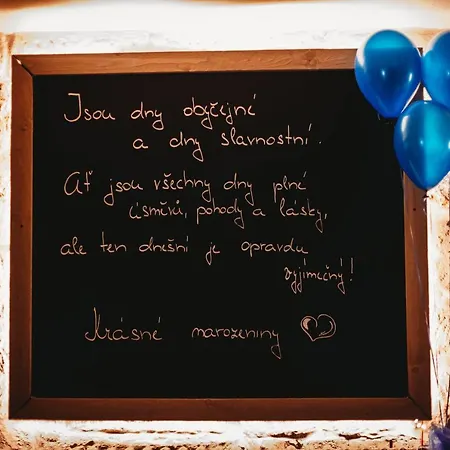 Jsou dny obyčejné
a dny slavnostní.
Ať jsou všechny dny plné
úsměvů, pohody a lásky,
ale ten dnešní je opravdu
vyjímečný!
Krásné narozeniny